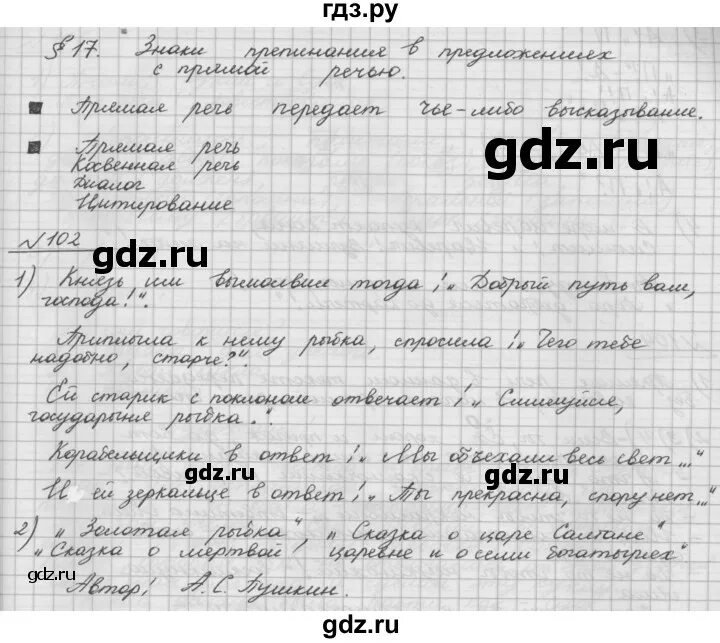 гдз.ру
§ 17. Знаки препинания в предложениях
с прямой речью.
Прямая речь передает чье-либо высказывание.
Прямая речь
Косвенная речь
Диалог
Цитирование
gdz.ru
gdz.ru
№102
1) Князь им вымолвил тогда: „Добрый путь вам,
господа!".
Приплыла к нему рыбка, спросила: „Чего тебе
надобно, старче?".
Ей старик с поклоном отвечает: „Смилуйся,
государыня рыбка.".
gdz.ru
Корабельщики в ответ: „Мы объехали весь свет..."
gdz.ru
И ей зеркальце в ответ: „Ты прекрасна, спору нет..."
2) „Золотая рыбка", „Сказка о царе Салтане"
„Сказка о мертвой царевне и о семи богатырях"
Автор: А.С. Пушкин.
gdz.ru
gdz.ru
gdz.ru